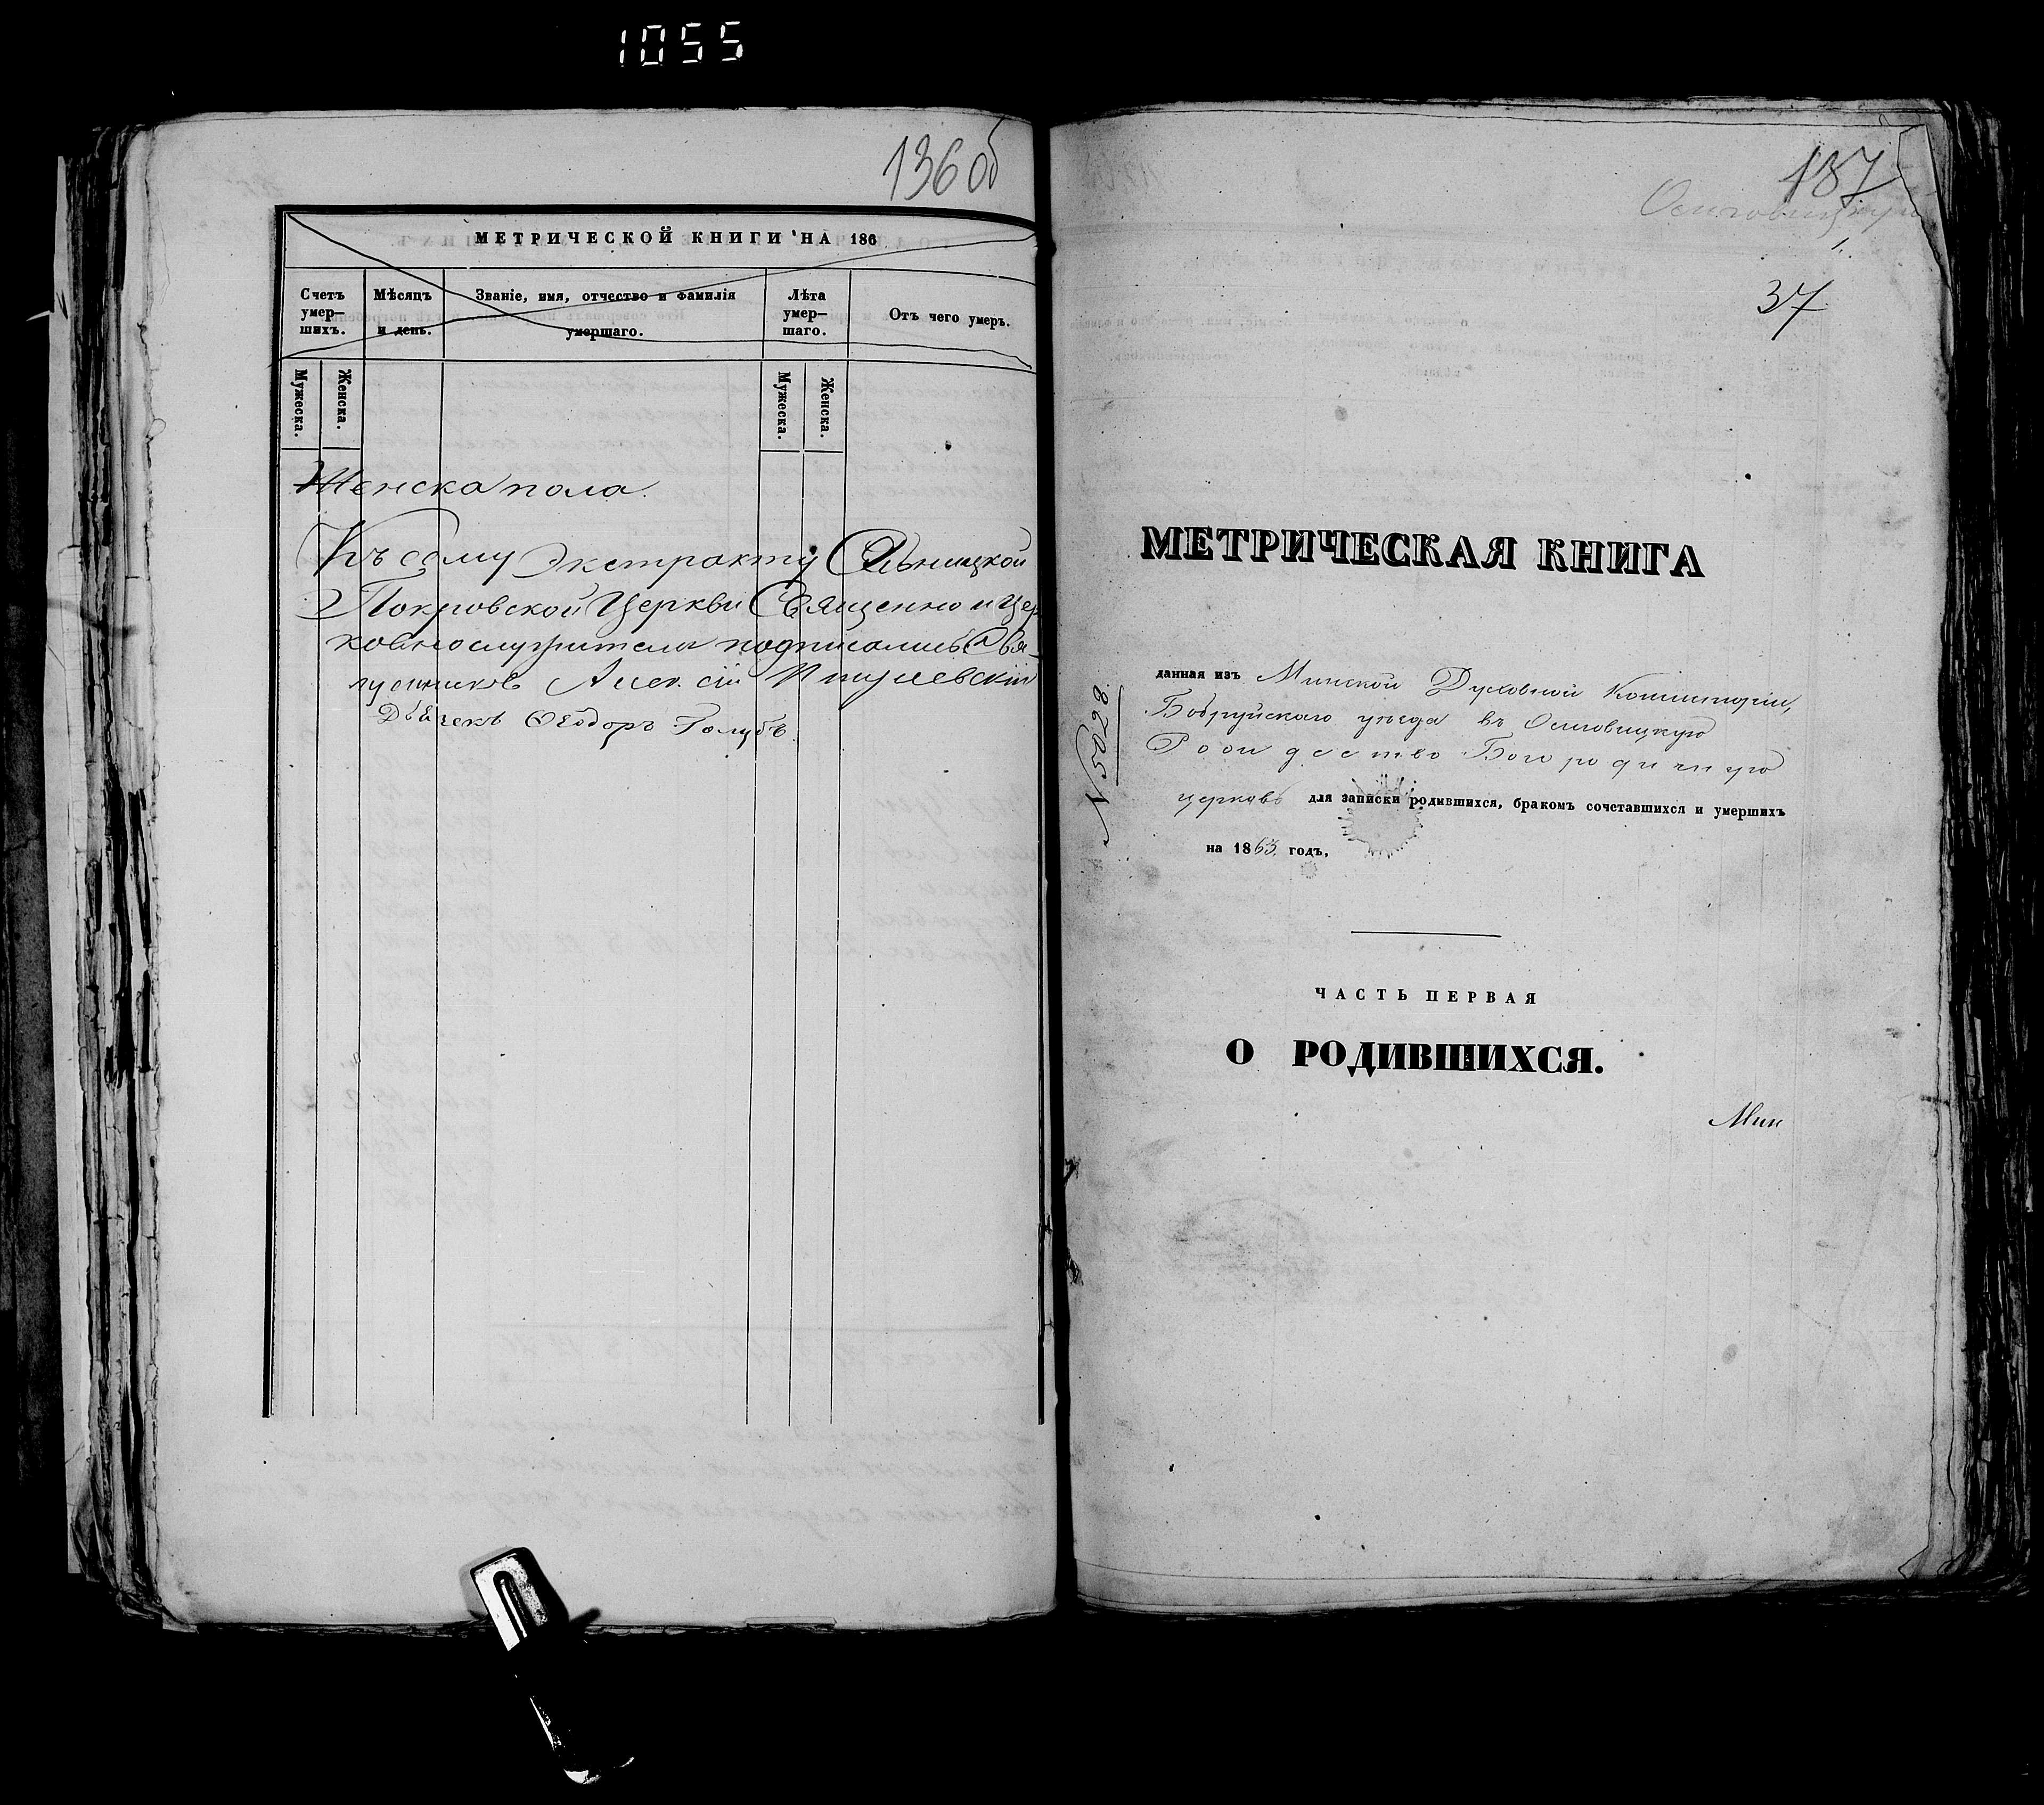 1055
136 об
МЕТРИЧЕСКОЙ КНИГИ НА 186
Счетъ умер— шихъ.
Мѣсяцъ и день.
Званіе, имя, отчество и фамилія умершаго.
Лѣта умер— шаго.
Отъ чего умеръ.
Мужеска.
Женска.
Мужеска.
Женска.
Женска пола.
Къ сему Экстракту
Покровской Церкви Священно и Цер
ковнослужители подписались Свя
Дьячекъ Ѳеодоръ Голубъ.
137
1.
37
МЕТРИЧЕСКАЯ КНИГА
данная изъ Минской Духовной Консисторіи,
Бобруйскаго уѣзда въ Осиповицкую
Рождество Богородичную
церковь для записки родившихся, бракомъ сочетавшихся и умершихъ
на 1863 годъ,
N 5028
ЧАСТЬ ПЕРВАЯ
О РОДИВШИХСЯ.
Мин